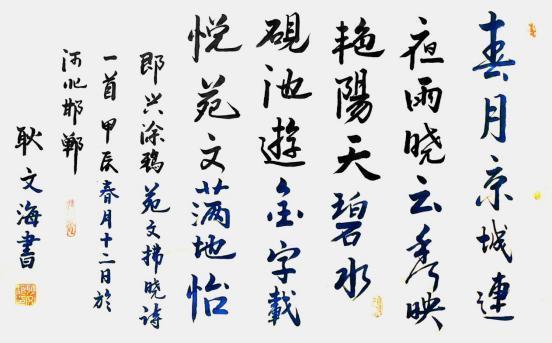 春月京城連
夜雨晓云秀映
艳陽天碧水
硯池遊金字載
悦苑文满地怡
即兴涂鸦苑文拂晓诗
一首甲辰春月十二日於
河北邯鄲
耿文海書